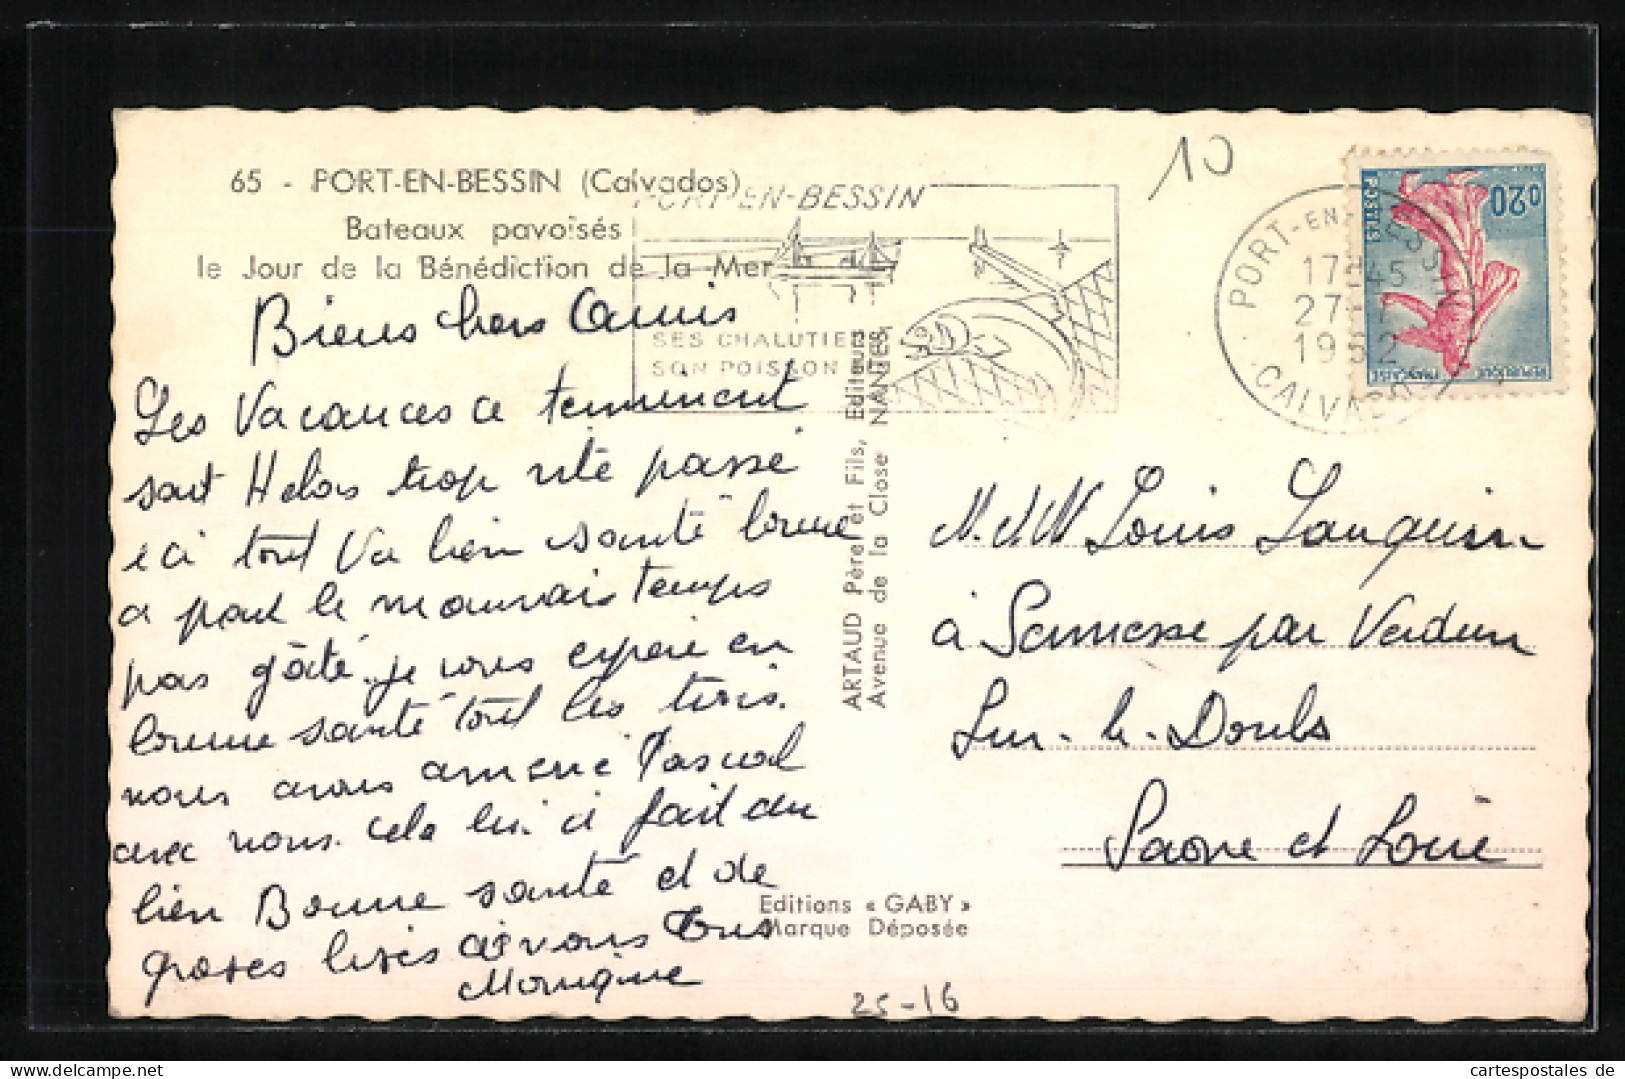 65 - PORT-EN-BESSIN (Calvados)
Bateaux pavoisés
le Jour de la Bénédiction de la Mer
Biens chers Amis
Les Vacances ce terminent
sont Hélas trop vite passé
ici tout Va bien santé bonne
a part le mauvais temps
pas gâté. je vous espère en
bonne santé tout les trois.
nous avons amené Pascal
avec nous. cela lui a fait du
bien Bonne santé et de
grosses bises à vous Tous
Monique
PORT-EN-BESSIN
SES CHALUTIERS
SON POISSON
ARTAUD Père et Fils, Editeurs
Avenue de la Close NANTES
Editions « GABY »
Marque Déposée
25-16
10
PORT-EN-BESSIN
17 45
27
19 2
CALVADOS
0,20
POSTES
REPUBLIQUE FRANÇAISE
M. et Mme Louis Lauquin
à Sermesse par Verdun
Sur-le-Doubs
Saone et Loire
cartespostales de